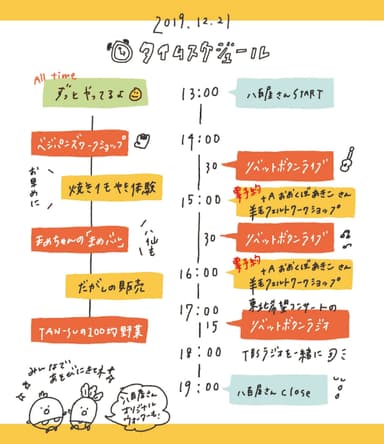 2019.12.21
タイムスケジュール
All time
ずっとやってるよ
ベジバンズワークショップ
お早めに
焼きイモやき体験
まめちゃんの「まめバル」
八仙も
だがしの販売
TAN-SUの200均野菜
みんなで、
あそびにきてネ
八百屋さん
オリジナル
13:00
八百屋さんSTART
14:00
30
リベットボタンライブ
15:00
要予約
+A おおくぼあきこ さん
羊毛フェルトワークショップ
30
リベットボタンライブ
16:00
要予約
+A おおくぼあきこ さん
羊毛フェルトワークショップ
17:00
東北希望コンサートの
15
リベットボタンラジオ
18:00
TBSラジオを一緒に
19:00
八百屋さん close